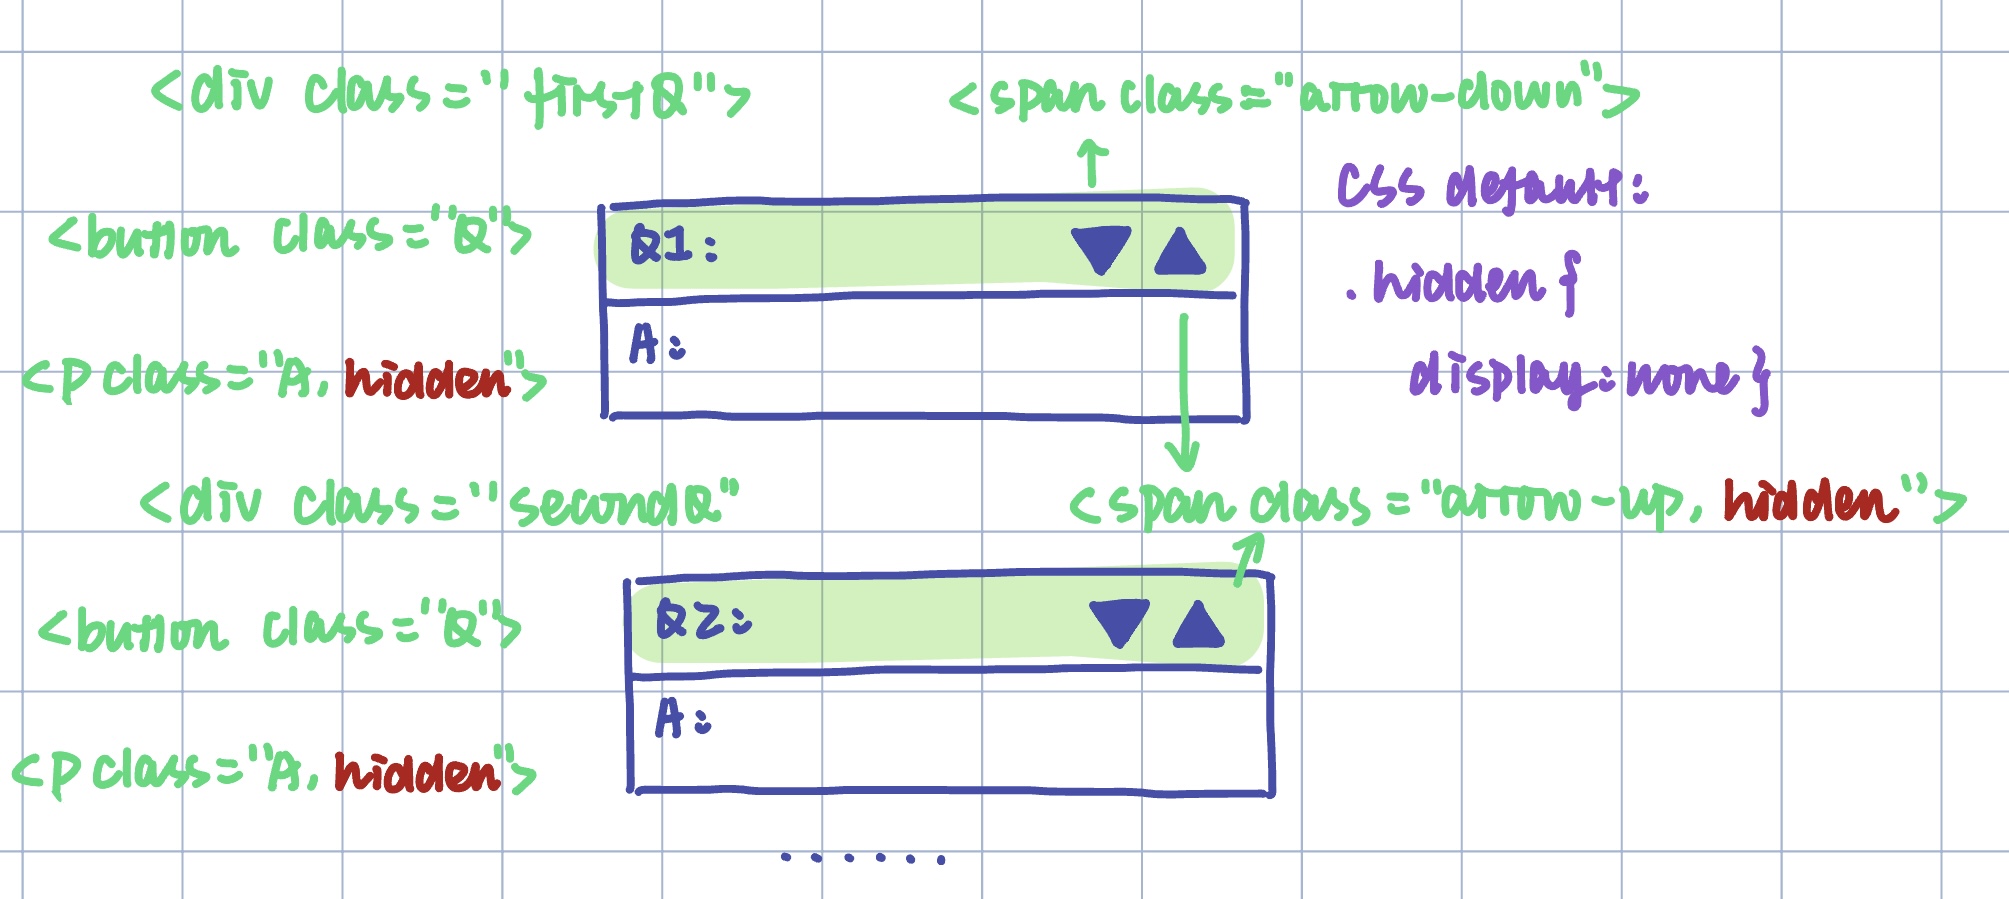 <div class="firstQ">
<span class="arrow-down">
Css default:
<button class="Q">
Q1:
.hidden {
A:
<p class="A, hidden">
display: none }
<div class="secondQ"
<span class="arrow-up, hidden">
<button class="Q">
Q2:
A:
<p class="A, hidden">
......